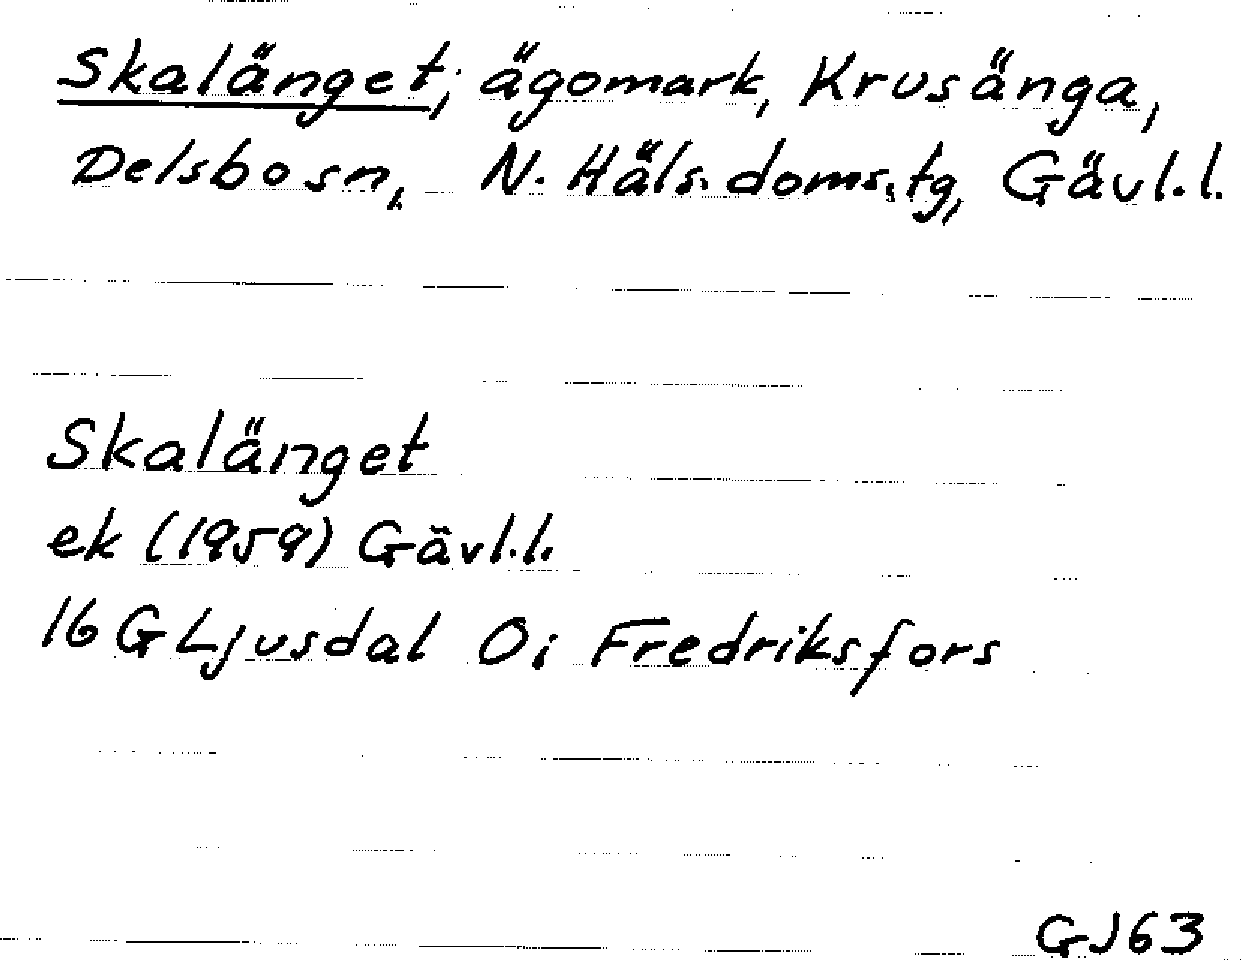 Skalänget, ägomark, Krusänga,
Delsbosn, N. Häls. doms.tg, Gävl.l.
Skalänget
ek (1959) Gävl.l.
16 G Ljusdal 0i Fredriksfors
GJ63